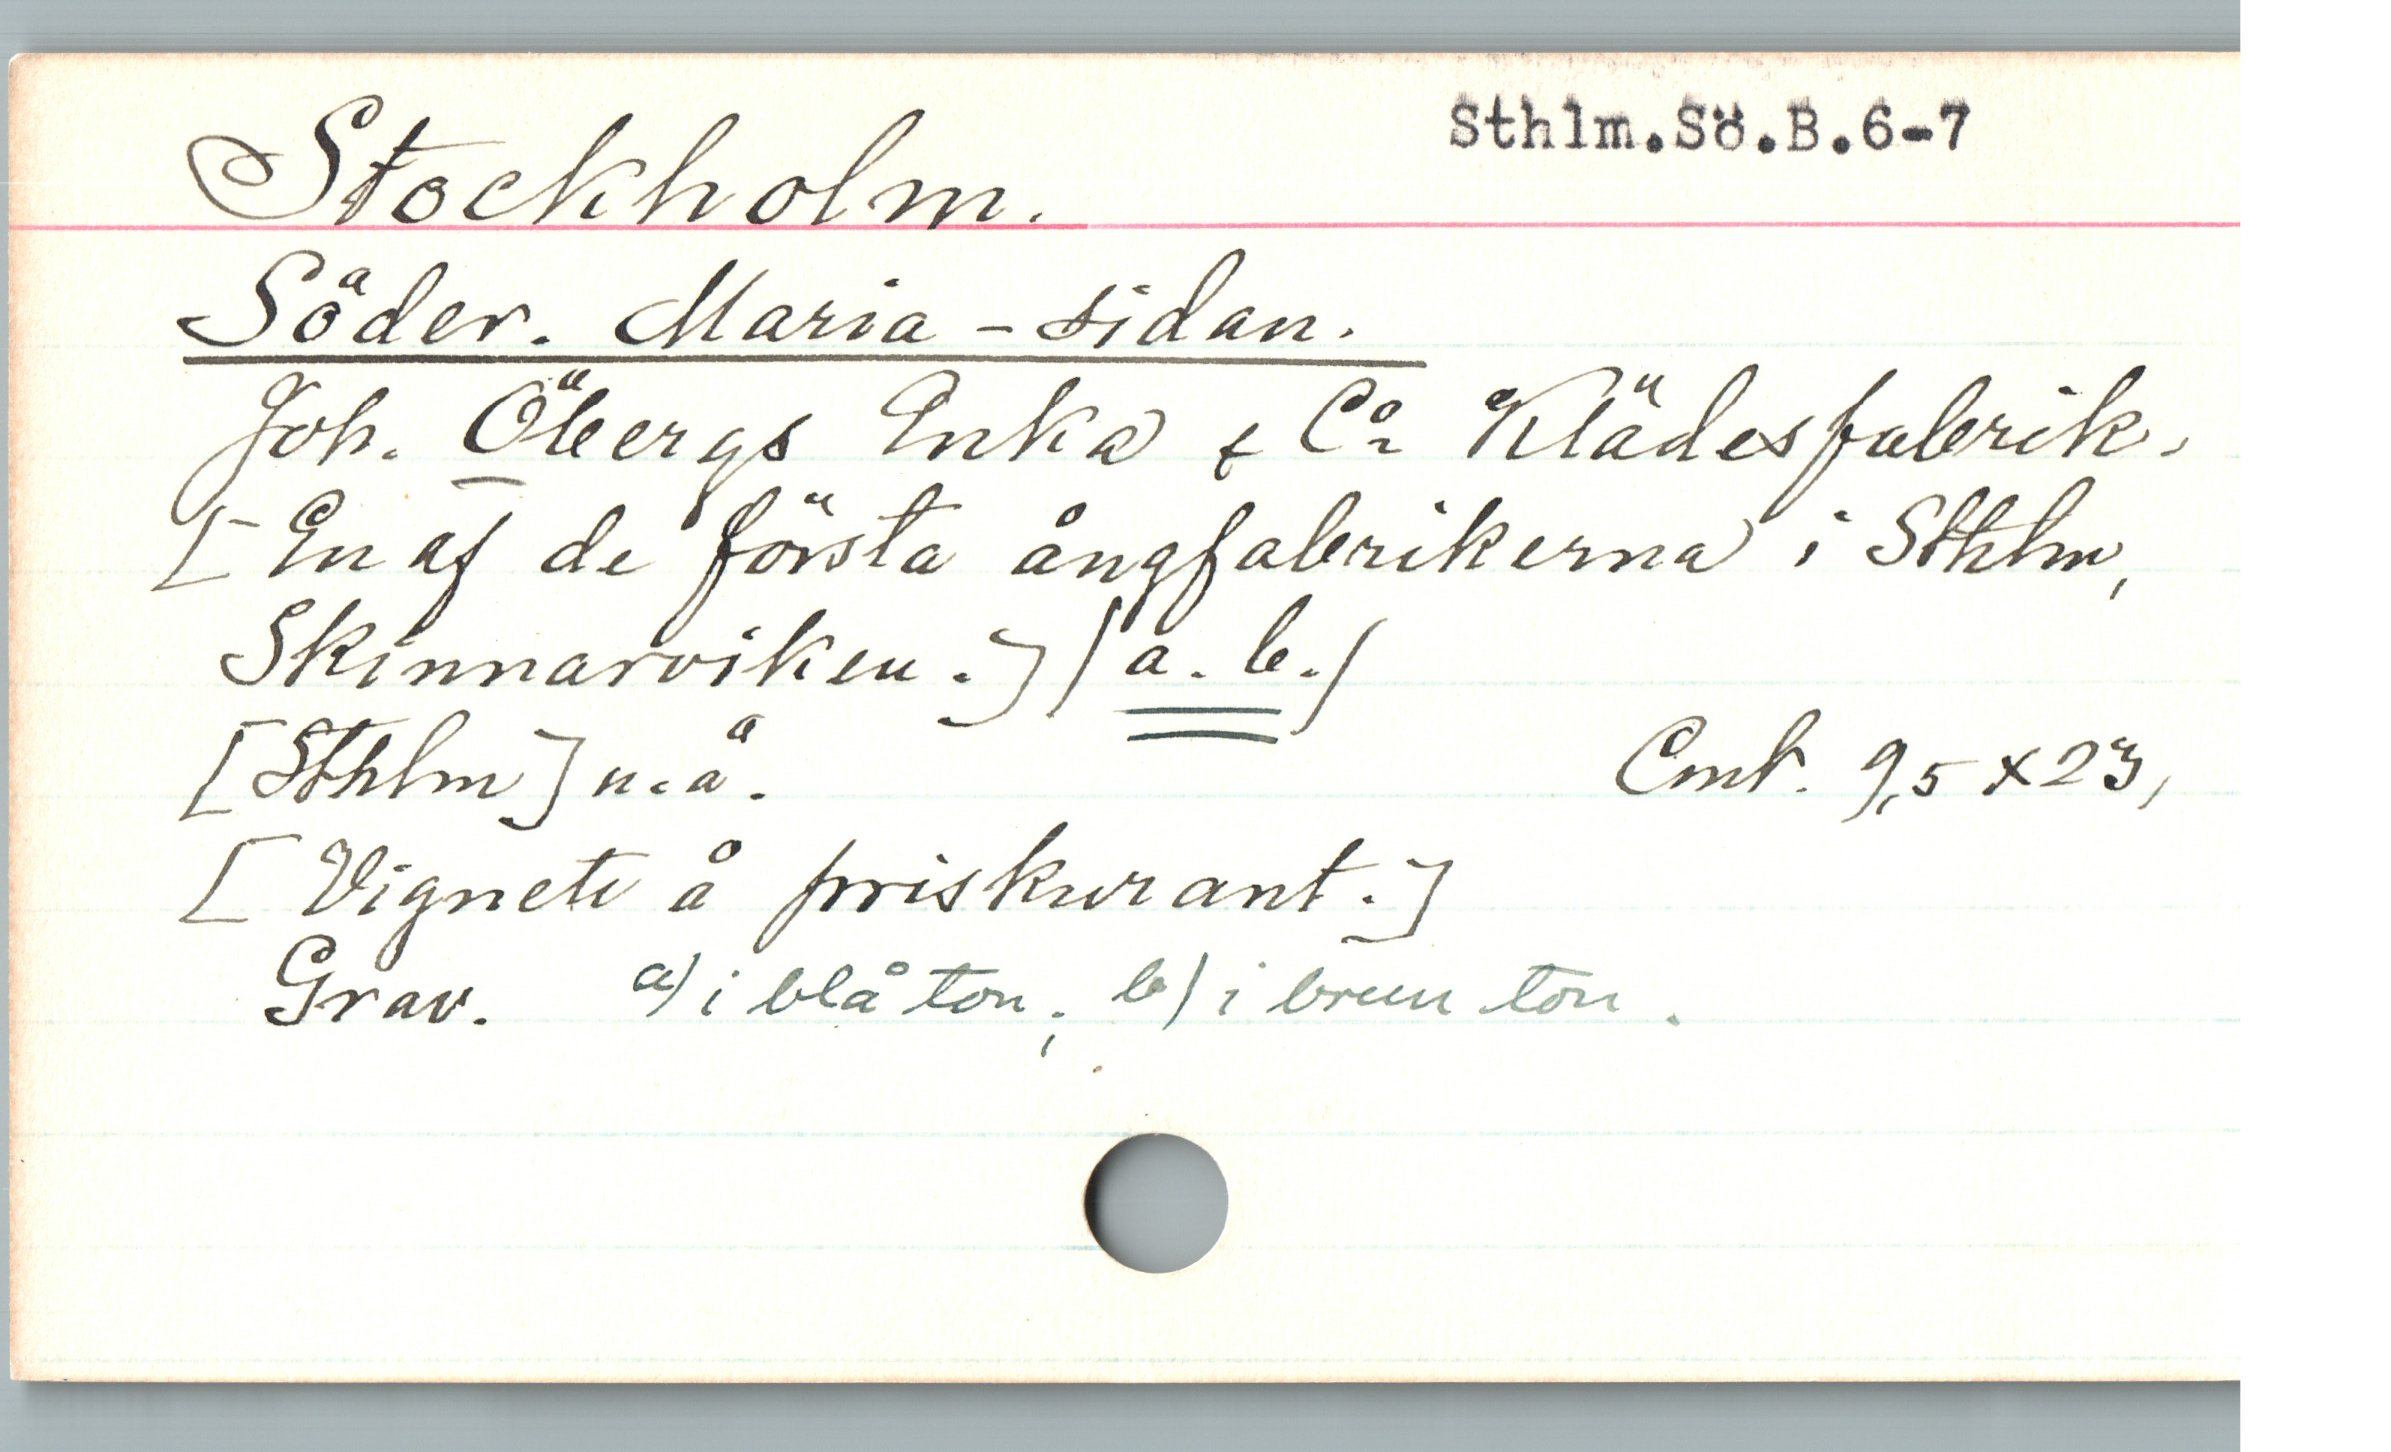 Sthlm.Sö.B.6-7
Stockholm.
Söder. Maria-sidan.
Joh. Öbergs Enka & Co Klädesfabrik.
[En af de första ångfabrikerna i Sthlm,
Skinnarviken.] (a.b.)
[Sthlm] u.å. Cmt. 9,5 x 23,
[Vignett å priskurant.]
Grav. a) i blå ton; b) i brun ton.